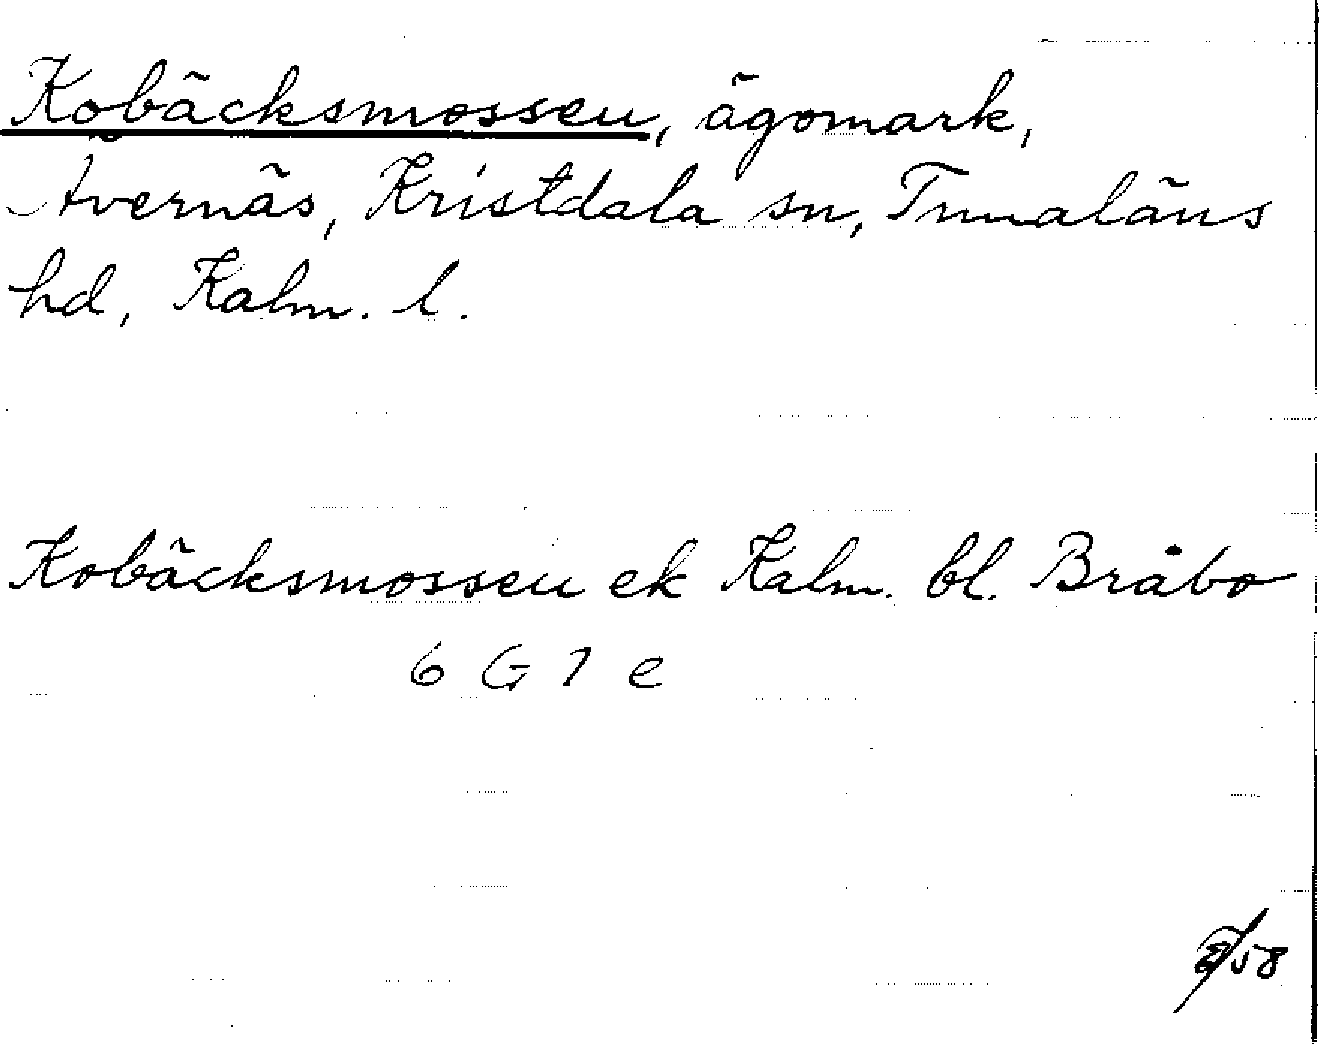 Kobäcksmossen, ägomark,
Åvernäs, Kristdala sn, Tunaläns
hd, Kalm. l.
Kobäcksmossen ek Kalm. bl. Bråbo
6 G 7 e
/58